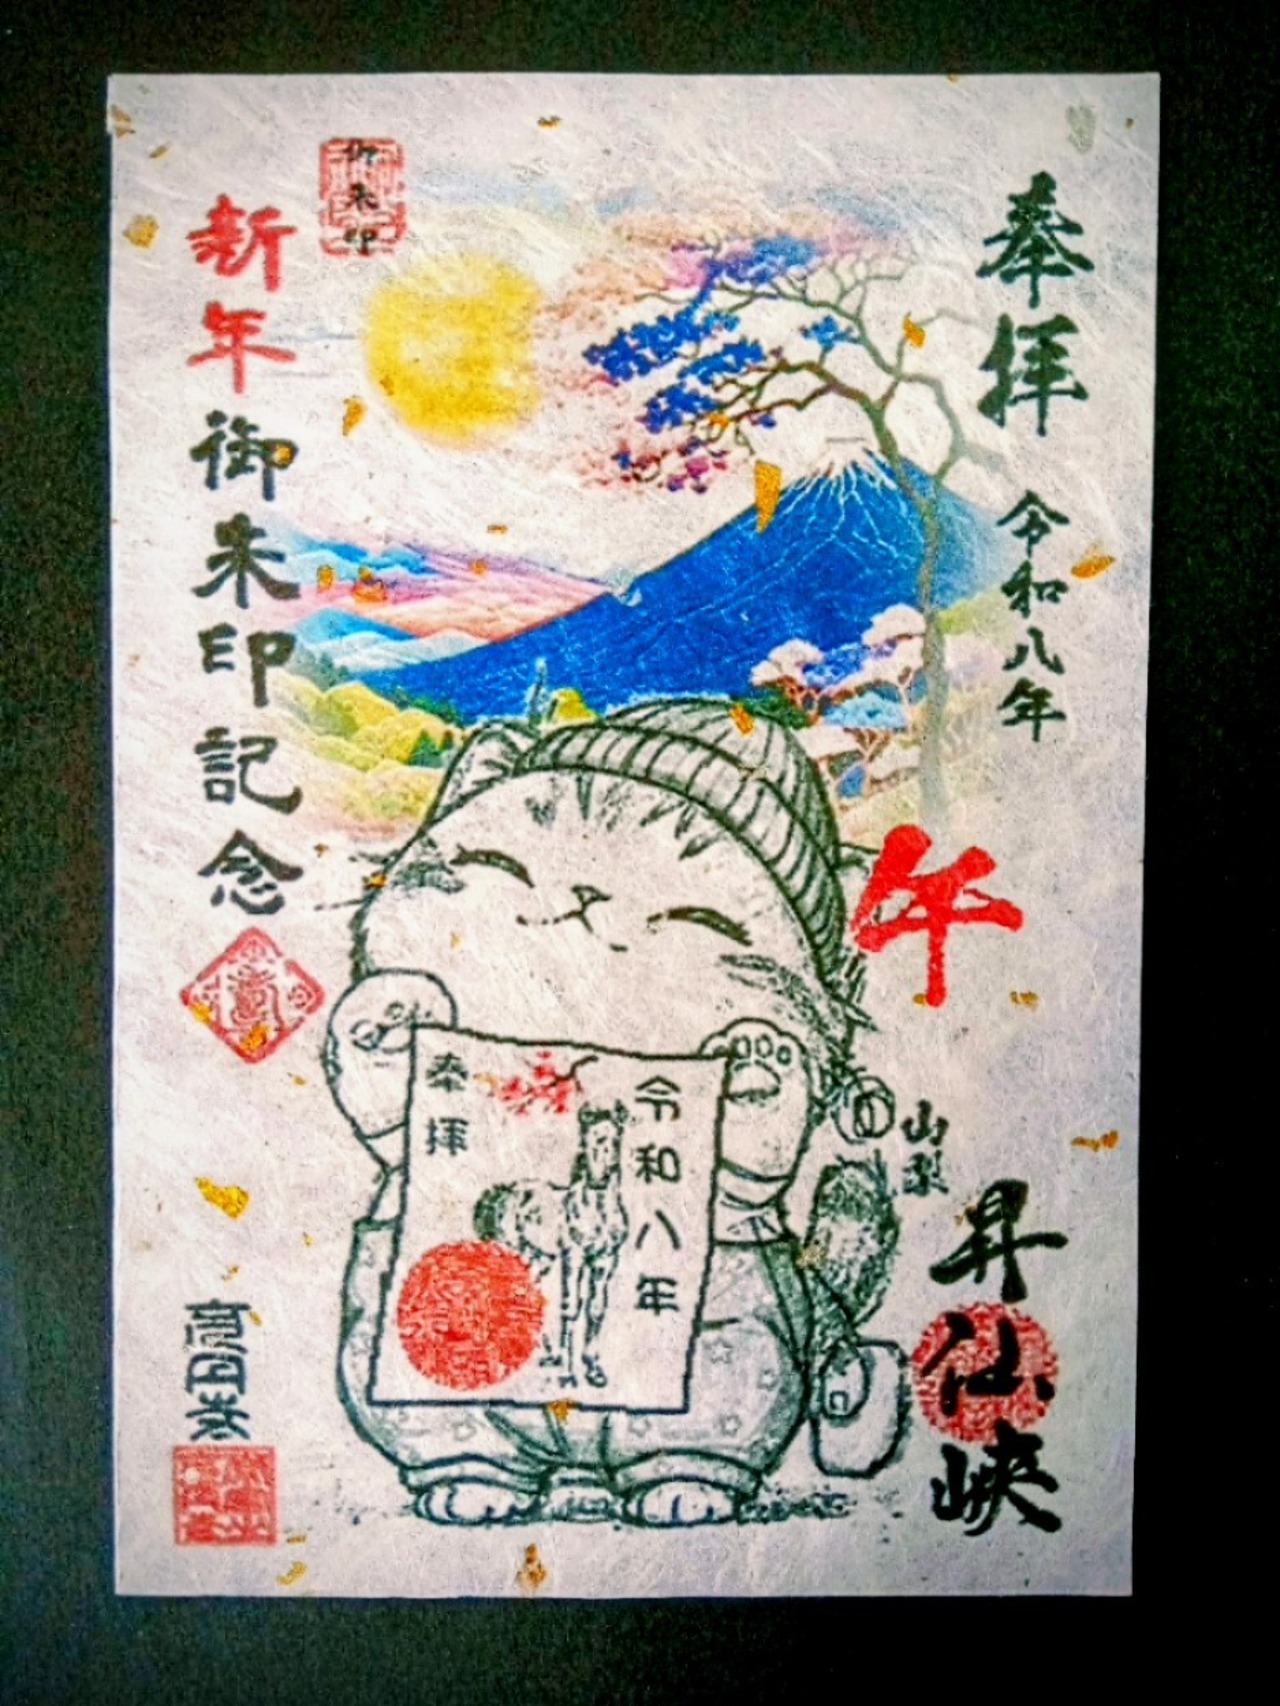 奉拝
令和八年
午
山梨
昇仙峡
御朱印
新年御朱印記念
令和八年
奉拝